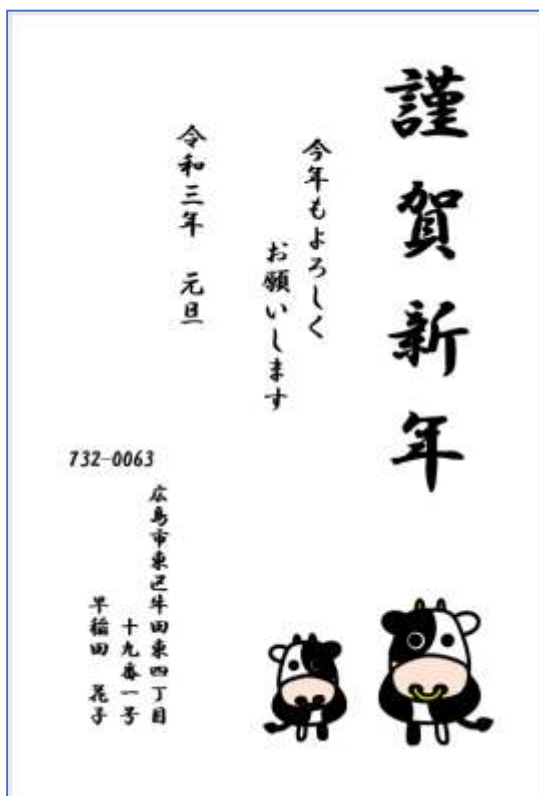 謹賀新年
今年もよろしく
お願いします
令和三年 元旦
732-0063
広島市東区牛田東四丁目
十九番一号
早稲田 花子